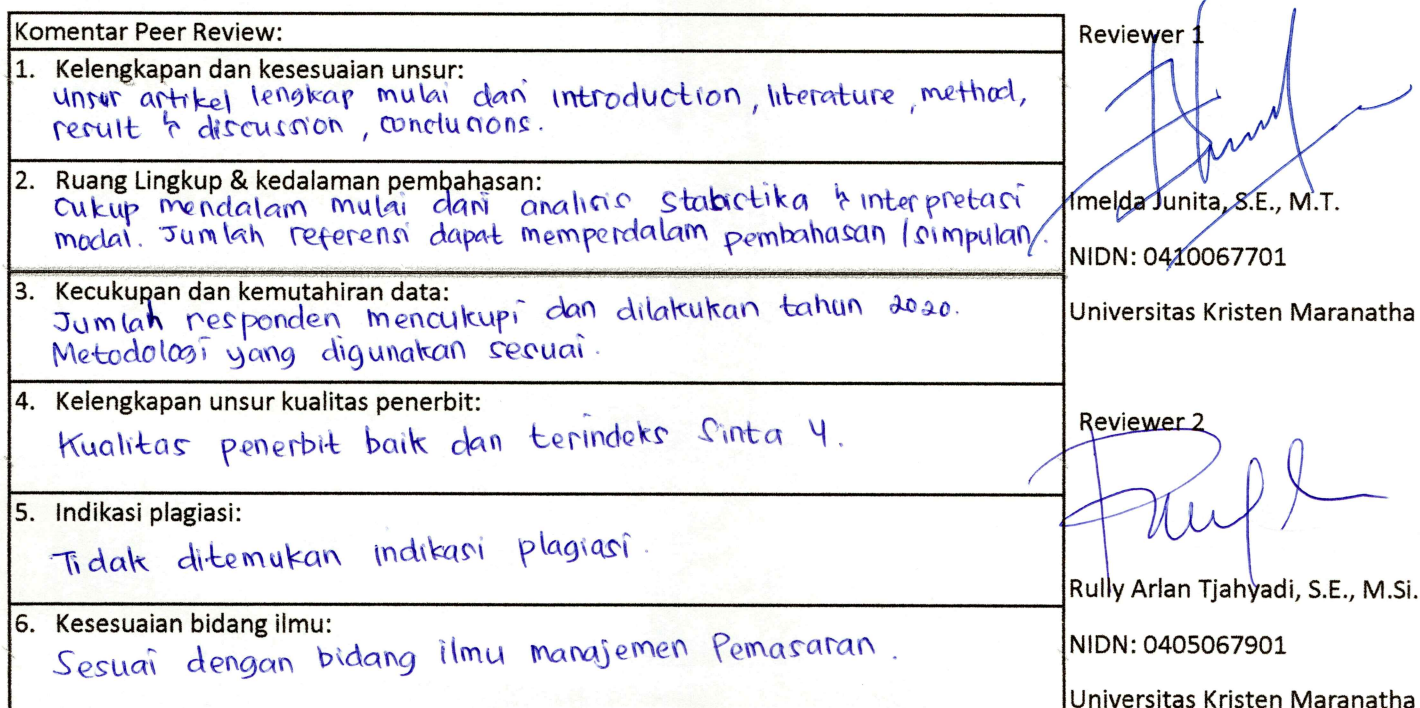 Komentar Peer Review:
1. Kelengkapan dan kesesuaian unsur:
unsur artikel lengkap mulai dari introduction, literature, method,
result & discussion, conclusions.
2. Ruang Lingkup & kedalaman pembahasan:
cukup mendalam mulai dari analisis statistika & interpretasi
modal. Jumlah referensi dapat memperdalam pembahasan/simpulan.
3. Kecukupan dan kemutahiran data:
Jumlah responden mencukupi dan dilakukan tahun 2020.
Metodologi yang digunakan sesuai.
4. Kelengkapan unsur kualitas penerbit:
Kualitas penerbit baik dan terindeks Sinta 4.
5. Indikasi plagiasi:
Tidak ditemukan indikasi plagiasi.
6. Kesesuaian bidang ilmu:
Sesuai dengan bidang ilmu manajemen Pemasaran.
Reviewer 1
Imelda Junita, S.E., M.T.
NIDN: 0410067701
Universitas Kristen Maranatha
Reviewer 2
Rully Arlan Tjahyadi, S.E., M.Si.
NIDN: 0405067901
Universitas Kristen Maranatha